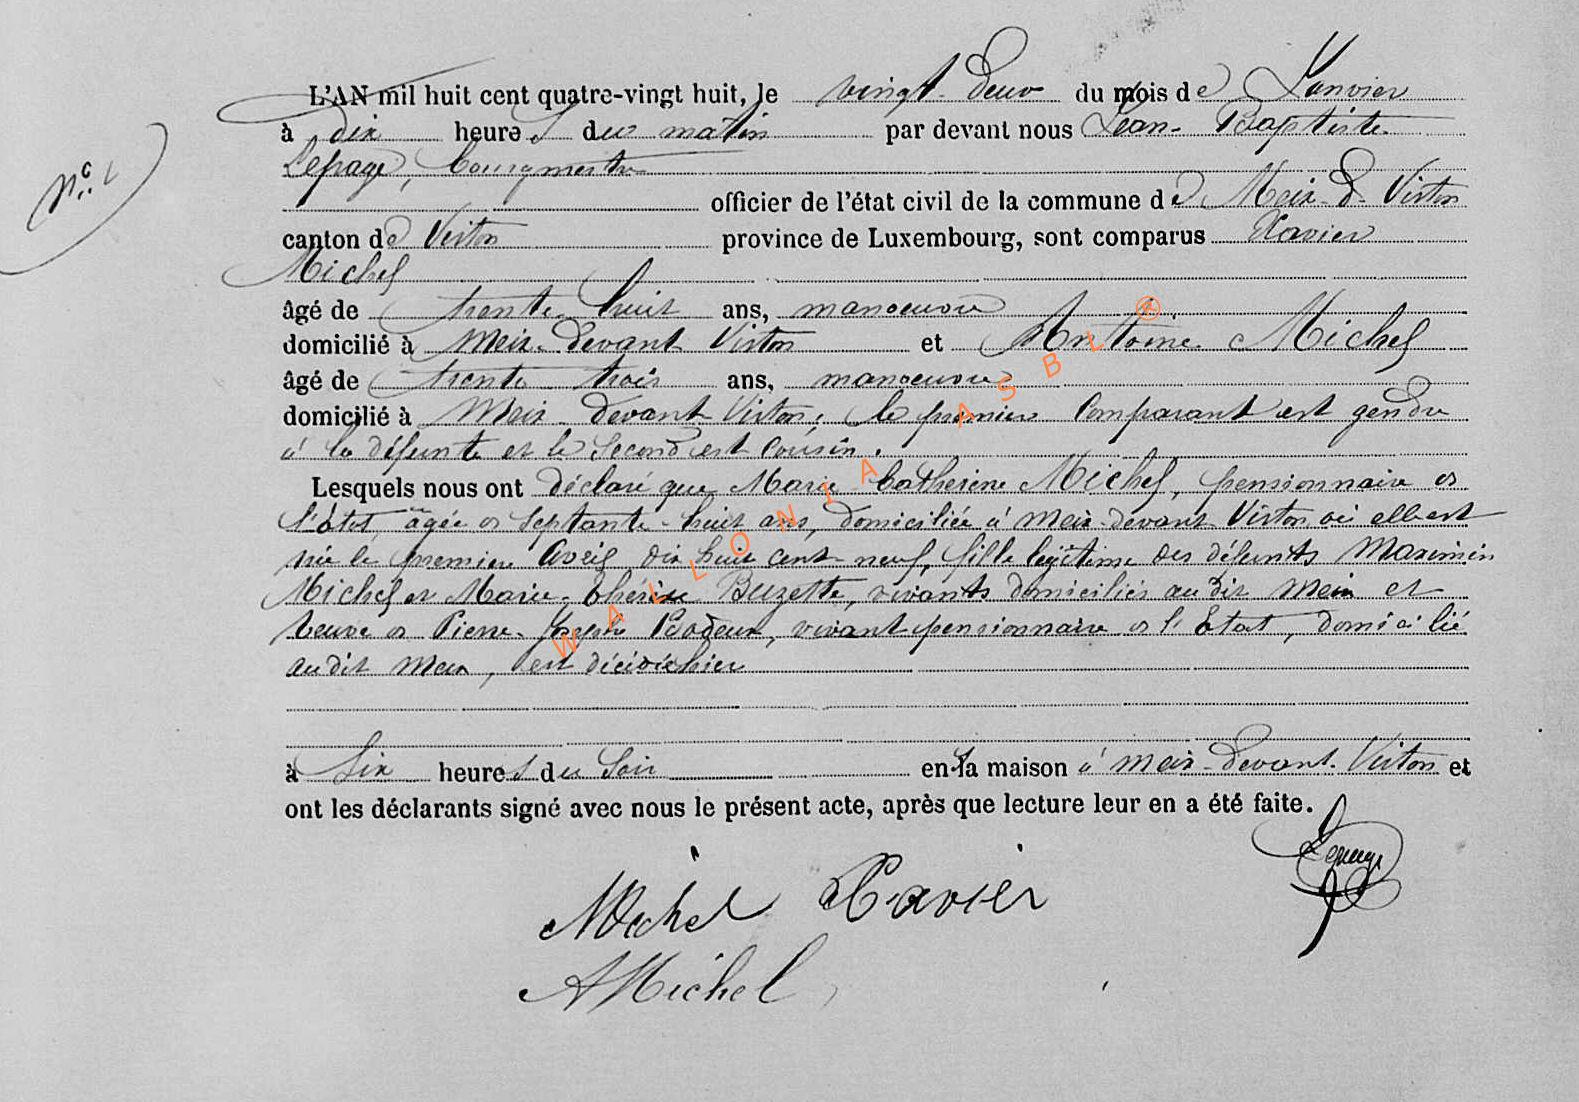 L'AN mil huit cent quatre-vingt huit, le vingt-deux du mois de Janvier
à dix heures du matin par devant nous Jean-Baptiste
Lepage, bourgmestre
officier de l'état civil de la commune de Meix-d-Virton
canton de Virton province de Luxembourg, sont comparus Xavier
Michel
âgé de trente huit ans, manoeuvre
domicilié à Meix-devant Virton et Antoine Michel
âgé de trente trois ans, manoeuvre
domicilié à Meix devant Virton; le premier comparant est gendre
à la défunte et le second est cousin.
Lesquels nous ont déclaré que Marie Catherine Michel, pensionnaire de
l'État, agée de septante-huit ans, domiciliée à Meix-devant Virton où elle est
née le premier Avril dix huit cent neuf, fille légitime des défunts Maximin
Michel et Marie-Thérèse Buzette, vivants domiciliés au dit Meix et
veuve de Pierre-Joseph, vivant pensionnaire de l'État, domicilié
au dit Meix, est décédée hier
à six heures du soir en sa maison à Meix-devant-Virton et
ont les déclarants signé avec nous le présent acte, après que lecture leur en a été faite.
Lepage
Michel Xavier
A Michel
WALLONIA ASBL ®